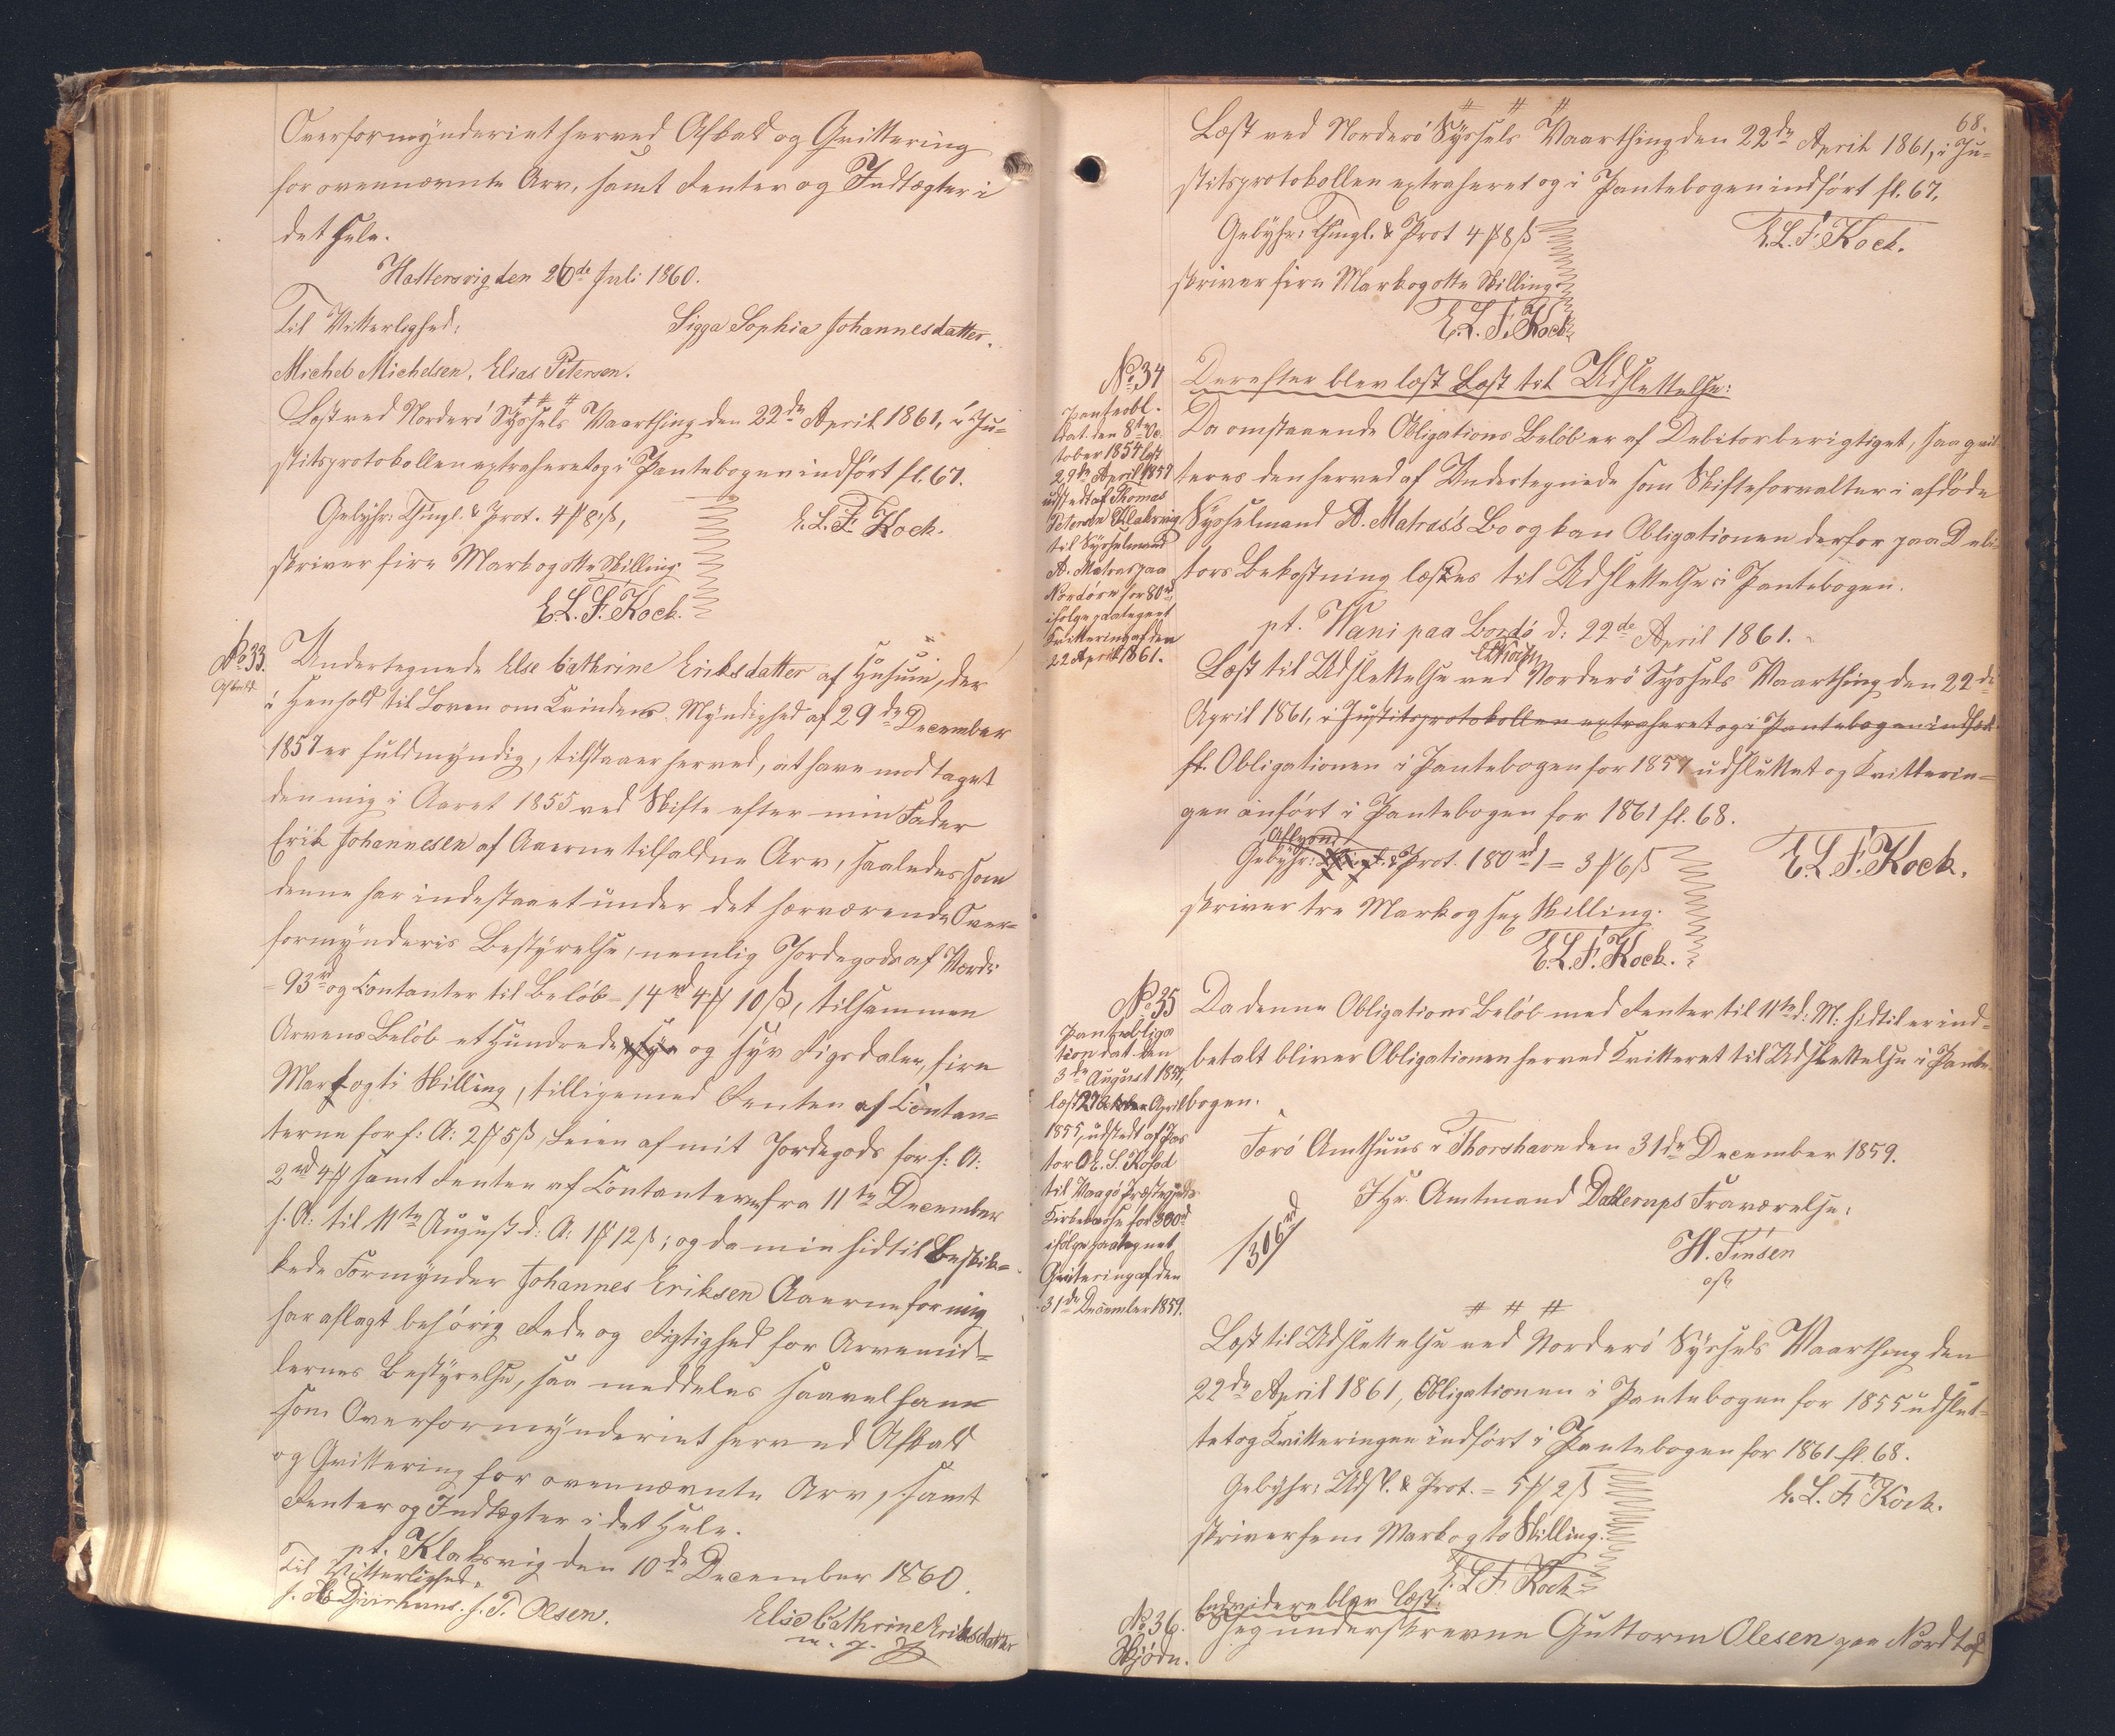 Overformynderiet herved Afkald og Qvittering
for ovennævnte Arv, samt Renter og Indtægter i
det hele.
Hattervig den 26de Juli 1860.
Til Vitterlighed:
Sigga Sophia Johannesdatter.
Michel Michelsen. Elias Petersen.
# # #
Læst ved Norderö Syssels Vaarthing den 22de April 1861, i Ju-
stitsprotokollen extraheret og i Pantebogen indført fl. 67.
Gebyhr: Thingl. & Prot. 4 ₻ 8 ß,
E. L. F. Kock.
skriver fire Mark og otte Skilling.
E. L. F. Kock.
No 33.
Afkald
Undertegnede Else Cathrine Eriksdatter af Husum, der
i Henhold til Loven om Kvindens Myndighed af 29de December
1857 er fuldmyndig, tilstaaer herved, at have modtaget
den mig i Aaret 1855 ved Skifte efter min Fader
Erik Johannesen af Aaerne tilfaldne Arv, saaledes som
denne har indestaaet under det herværende Over-
formynderis Bestyrelse, nemlig Jordegods af Værdi
= 93 rd og Contanter til Beløb = 14 rd 4 ₻ 10 ß, tilsammen
Arvens Beløb et Hundrede og syv Rigsdaler, fire
Mark og ti Skilling, tilligemed Renten af Contan-
terne for f: A: 2 ₻ 5 ß, Leien af mit Jordegods for f: A:
2 rd 4 ₻ samt Renten af Contanterne fra 11te December
f. A: til 11te August d: A: 1 ₻ 12 ß; og da min hidtil beskik-
kede Formynder Johannes Eriksen Aaerne for mig
har aflagt behørig Rede og Rigtighed for Arvemid-
lernes Bestyrelse, saa meddeles saavel ham
som Overformynderiet herved Afkald
og Qvittering for ovennævnte Arv, samt
Renter og Indtægter i det Hele.
pt. Klaksvig den 10de December 1860.
Til Vitterlighed.
J. P. Olsen.
Else Cathrine Eriksdatter
m. p. P.
68.
# # #
Læst ved Norderö Syssels Vaarthing den 22de April 1861, i Ju-
stitsprotokollen extraheret og i Pantebogen indført fl. 67.
Gebyhr: Thingl. & Prot 4 ₻ 8 ß
E. L. F. Kock.
skriver fire Mark og otte Skilling.
E. L. F. Kock.
No 34
Derefter blev læst Læst til Udslettelse:
Panteobl.
dat. den 8de Oc-
tober 1854 læst
29de April 1857
udstedt af Thomas
Petersen Klaksvig
til Sysselmand
A. Matras paa
Norderø for 80 rd
ifølge paategnet
Kvittering af den
22 April 1861.
Da omstaaende Obligations Beløb er af Debitor berigtiget, saa qvit-
teres den herved af Undertegnede som Skifteforvalter i afdøde
Sysselmand A. Matras's Bo og kan Obligationen derfor paa Debi-
tors Bekostning læses til Udslettelse i Pantebogen.
pt. Wani paa Bordö d: 22de April 1861.
Læst til Udslettelse ved Norderö Syssels Vaarthing den 22de
April 1861, i Justitsprotokollen extraheret og i Pantebogen indført
fl. Obligationen i Pantebogen for 1857 udslettet og Kvitterin-
gen anført i Pantebogen for 1861 fl. 68.
Gebyhr: & Prot. (80 rd) = 3 ₻ 6 ß
E. L. F. Kock.
skriver tre Mark og sex Skilling.
E. L. F. Kock.
No 35
Pantobliga
tion dat. den
3de August 1854,
læst 27 April
1855, udstedt af Pas
tor
til Vaagø Præstegjelds
Kirkekasse for 300 rd
ifølge paategnet
Qvittering af den
31de December 1859.
Da denne Obligations Beløb med Renter til 11te d: M: hidtil er ind-
betalt bliver Obligationen herved Kvitteret til Udslettelse i Pante-
bogen.
Færö Amthuus i Thorshavn den 31de December 1859.
I Hr. Amtmand Dahlerups Fraværelse:
/306 rd/
H. Finsen
cst.
# # #
Læst til Udslettelse ved Norderö Syssels Vaarthing den
22de April 1861, Obligationen i Pantebogen for 1855 udslet-
tet og Kvitteringen indført i Pantebogen for 1861 fl. 68.
Gebyhr: Udsl. & Prot. = 5 ₻ 2 ß
E. L. F. Kock.
skriver fem Mark og to Skilling.
E. L. F. Kock
Endvidere blev læst:
No 36.
Skjøde.
Jeg underskrevne Guttorm Olesen paa Nordtof